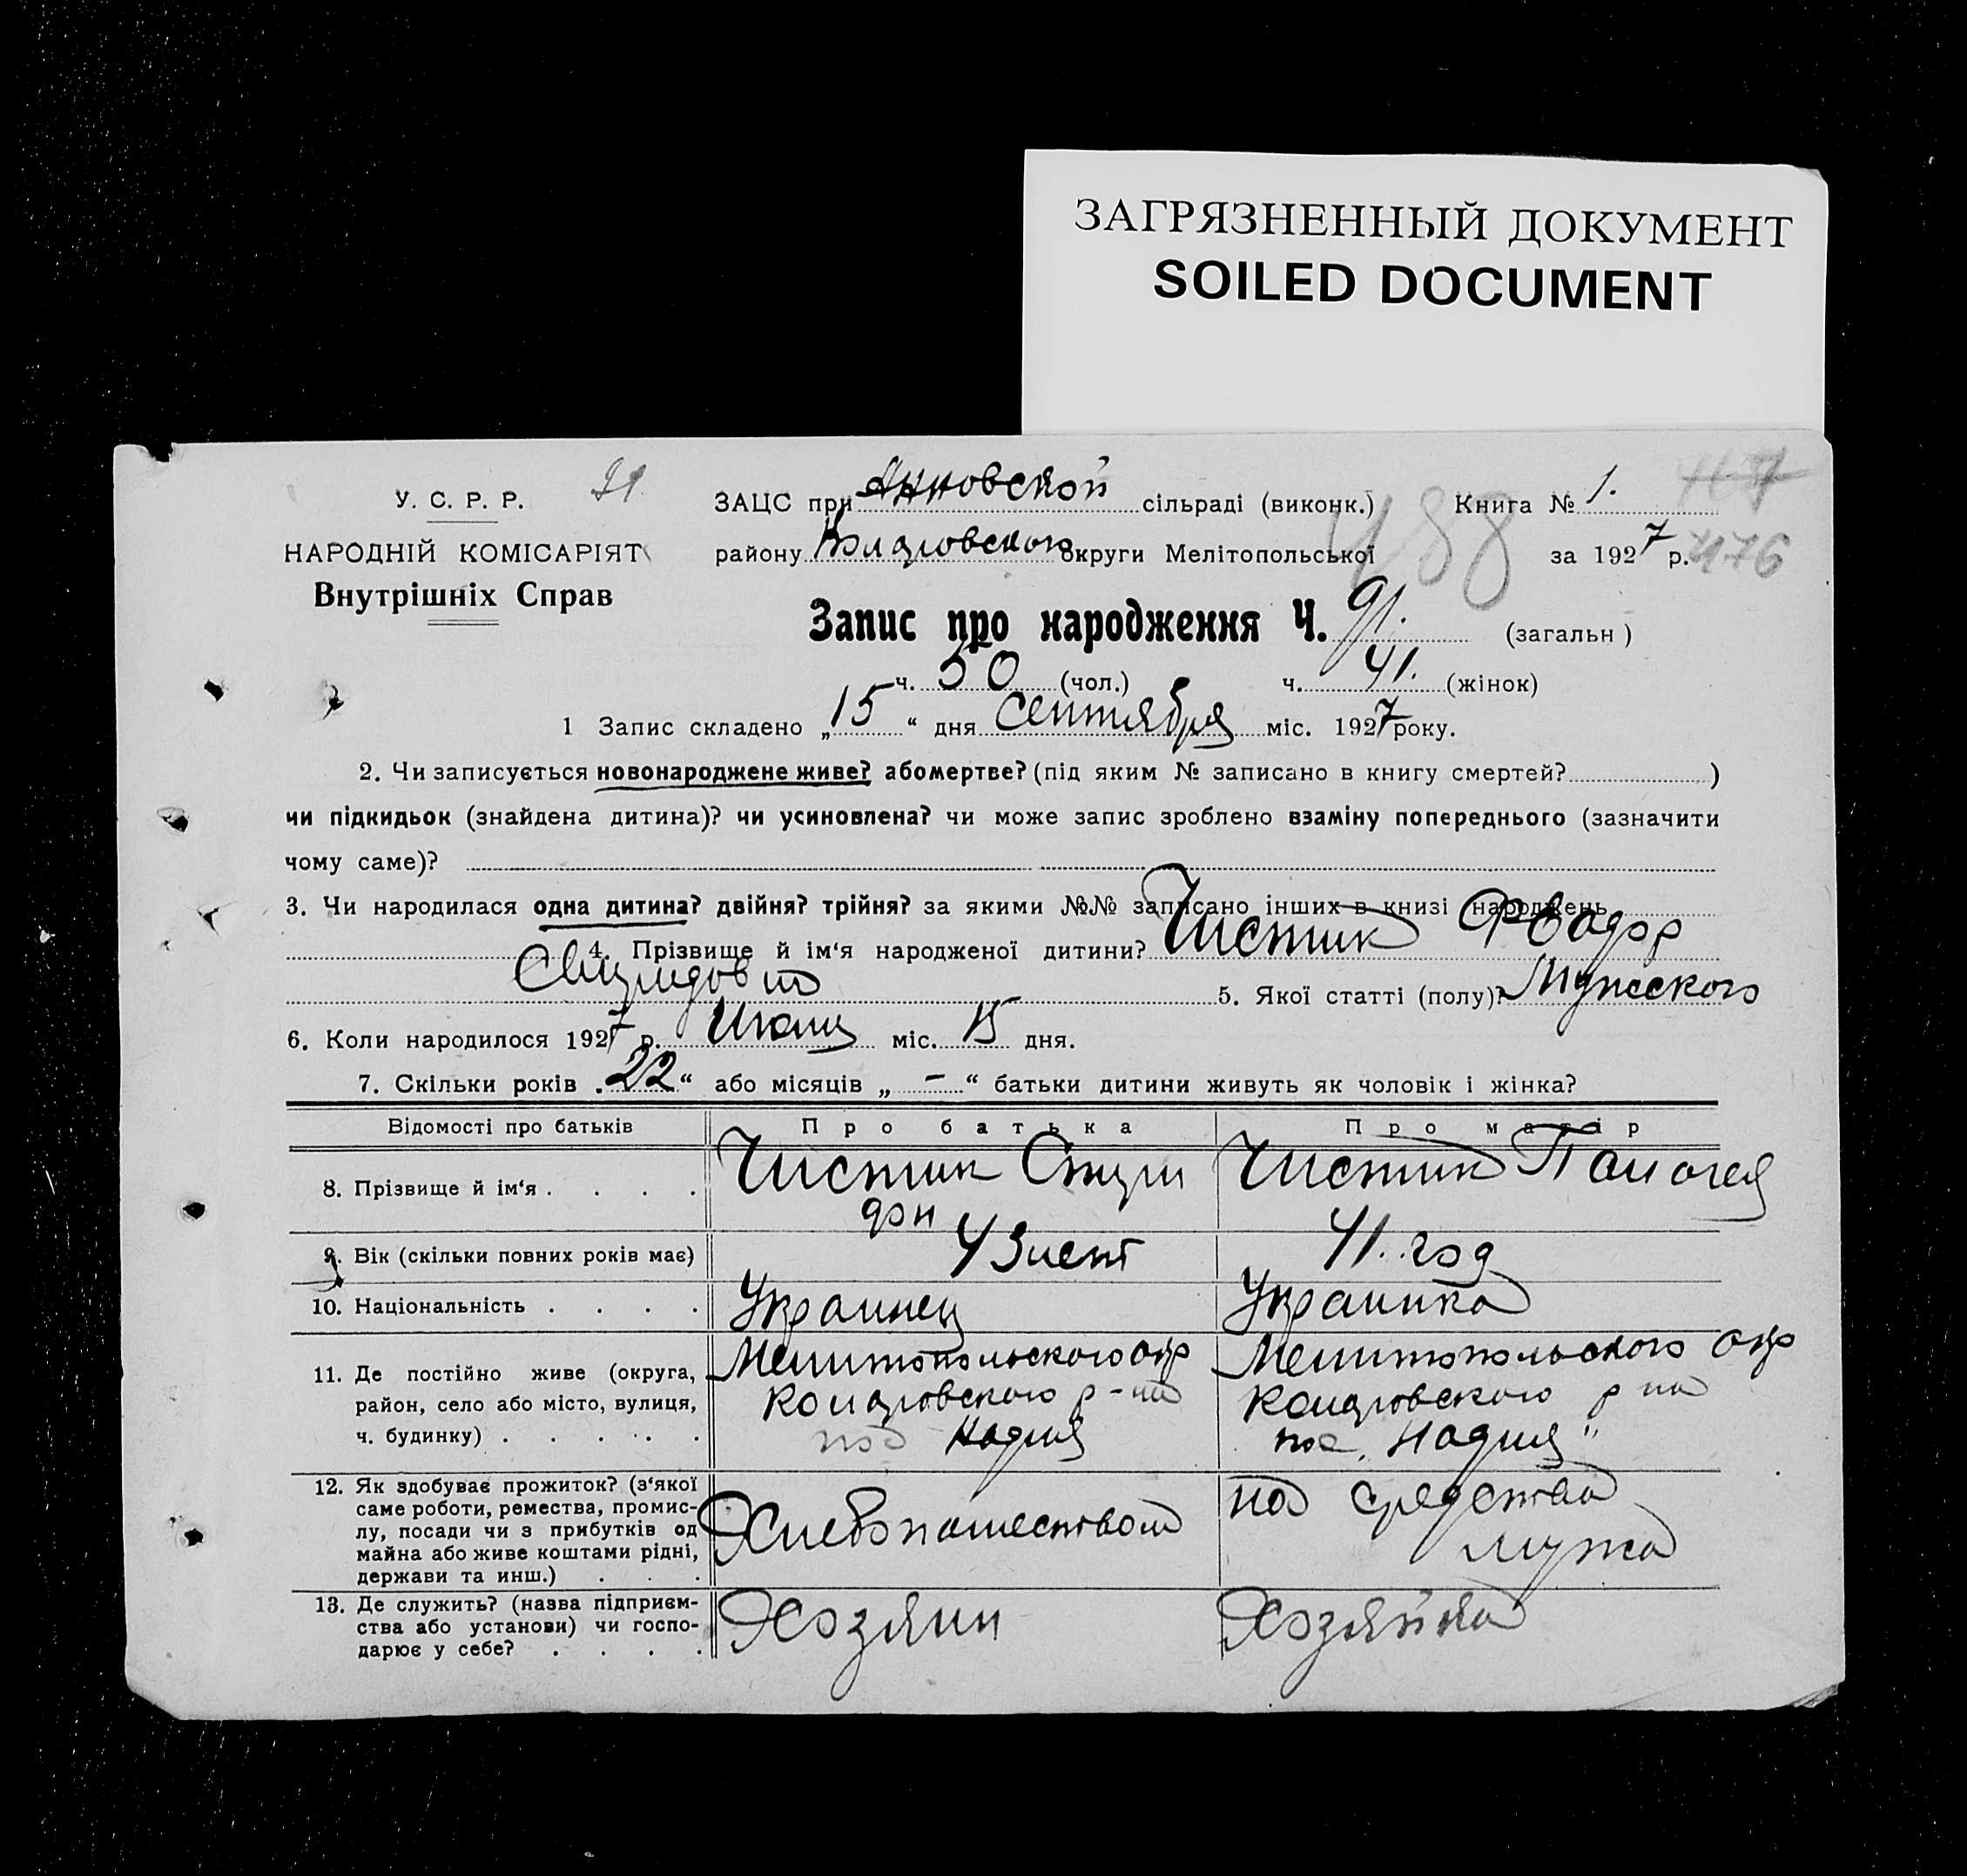 ЗАГРЯЗНЕННЫЙ ДОКУМЕНТ
SOILED DOCUMENT
У. С. Р. Р. 91
НАРОДНІЙ КОМІСАРІЯТ
Внутрішніх Справ
ЗАЦС при Анновской сільраді (виконк.) Книга № 1.
району округи Мелітопольської за 1927 р. 476
488
Запис про народження Ч. 91. (загальн)
ч. 50 (чол.) ч. 41. (жінок)
1 Запис складено „15“ дня Сентября міс. 1927 року.
2. Чи записується новонароджене живе? або мертве? (під яким № записано в книгу смертей? )
чи підкидьок (знайдена дитина)? чи усиновлена? чи може запис зроблено взаміну попереднього (зазначити
чому саме)?
3. Чи народилася одна дитина? двійня? трійня? за якими №№ записано інших в книзі народжень
4. Прізвище й ім‘я народженої дитини? Чистик
5. Якої статті (полу)? Мужеского
6. Коли народилося 1927 р. міс. 15 дня.
7. Скільки років „22“ або місяців „ – “ батьки дитини живуть як чоловік і жінка?
Відомості про батьків Про батька Про матір
8. Прізвище й ім‘я . . . . Чистик Чистик
9. Вік (скільки повних років має) 43 лет 41. год
10. Національність . . . . Украинец Украинка
11. Де постійно живе (округа, Мелитопольского окр Мелитопольского окр
район, село або місто, вулиця, р-на р на
ч. будинку) . . . . . Надия пос. „Надия"
12. Як здобуває прожиток? (з‘якої на средства
саме роботи, ремества, промис- Хлебопашеством мужа
лу, посади чи з прибутків од
майна або живе коштами рідні,
держави та инш.) . . .
13. Де служить? (назва підприєм- Хозяин Хозяйка
ства або установи) чи госпо-
дарює у себе? . . . .